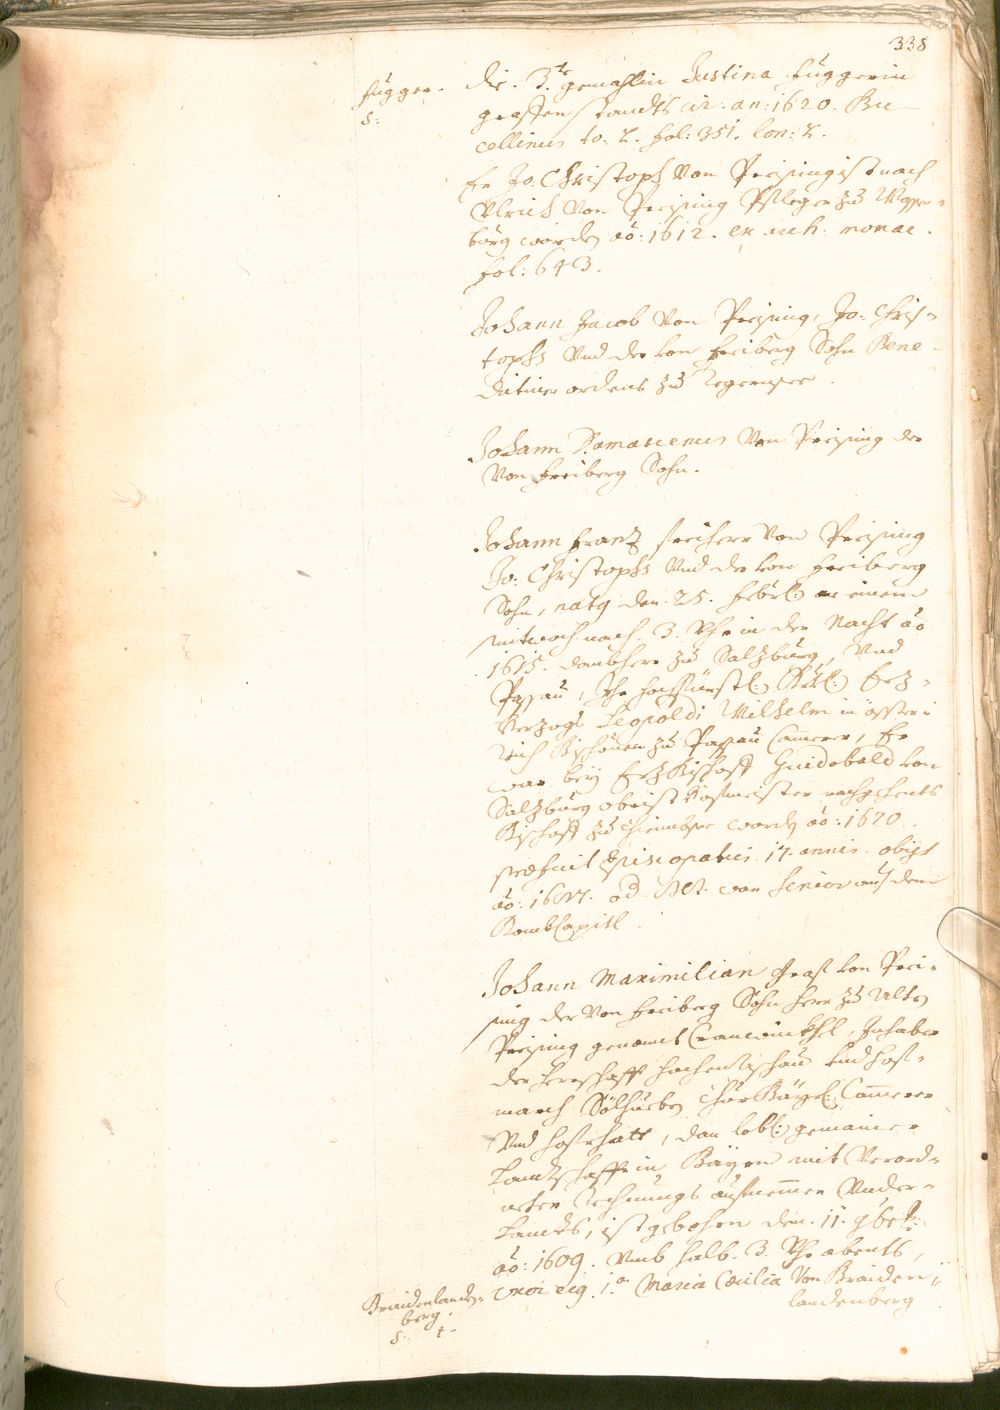 338
Fugger.
S:
die 3.te gemahlin Justina Fuggerin
graffenstandts ux: an: 1620. Bu-
cellinus to: 2. fol: 351. lon: 2.
Er Jo: Christoph Von Preising ist nach
Vlrich Von Preising Pfleger zu Wasser-
burg worden ao: 1612. ex arch: monac.
fol: 643.
Johann Jacob Von Preising, Jo: Chris-
tophs Vnd der von Freiberg Sohn Bene-
dictiner ordens zu Tegernsee.
Johann Damascenus Von Preising der
Von Freiberg Sohn.
Johann Frantz freiherr Von Preising
Jo: Christophs Vnd der von Freiberg
Sohn, natg den 25. Febr: an einem
mitwoch nach 3. Vhr in der Nacht ao
1615. Dombherr zu Salzburg, Vnd
Passau, Erz-
herzogs Leopoldi Wilhelm in össter-
reich Bischouen zu Passau Camerer, Er
war bey ErzBischoff Guidobald von
Salzburg obrist Hofmeister nachgehents
Bischoff zu Chiembsee worden ao: 1670.
præfuit Episcopatui 17. annis obijt
ao: 1687. war Senior auf dem
DombCapitl.
Johann Maximilian Graf von Prei-
sing der Von Freiberg Sohn herr zu Alten
Preising genannt Cranwinkhl, Inhaber
der herrschafft hochenAschau Vnd
march Sölhueben ChurBayr: Camerer
Vnd hofrhatt, dan lobl: gemainer
Landtschafft in Bayrn mit Verord-
neter Rechnungs aufnemmer Vnder-
landts, ist gebohren den 11. 9bris
ao: 1609. Vmb halb 3. Vhr abents,
uxor eig 1.a Maria Cæcilia Von Braiden-
landenberg
Braidenlanden-
berg.
S: t.